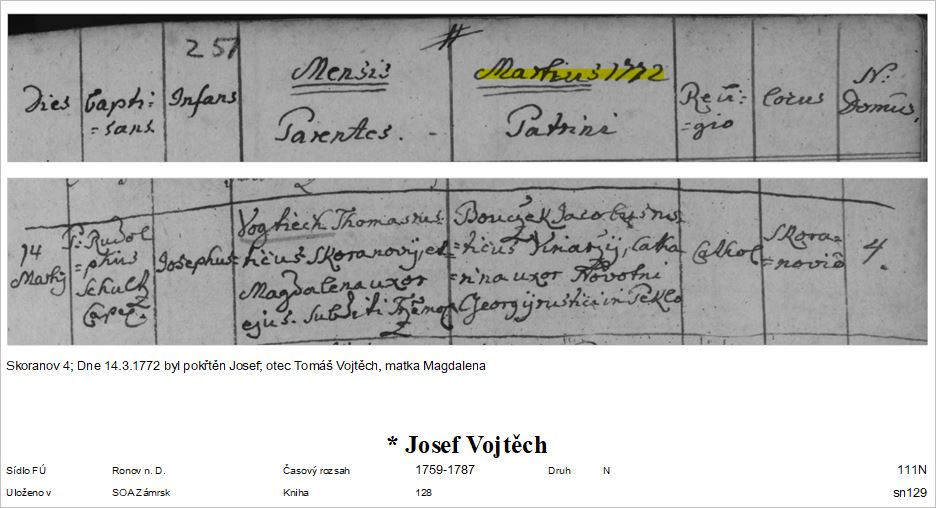 257
Mensis Martius 1772
Dies Bapti=sans Infans Parentes. Patrini Reli=gio Locus N: Domus.
14 Martij
P: Rudol=phus Schulk Capel.
Josephus
Vogtiech Thomas rus=
=ticus Skoranovij et
Magdalena uxor
ejus. Subditi
Bouczek Jacobus rus=
=ticus Viniarzij, Catha
=rina uxor Novotni
Georgij rustici in Peklo
Cathol
Skora=
=novio
4.
Skoranov 4; Dne 14.3.1772 byl pokřtěn Josef; otec Tomáš Vojtěch, matka Magdalena
* Josef Vojtěch
Sídlo FÚ Ronov n. D. Časový rozsah 1759-1787 Druh N 111N
Uloženo v SOA Zámrsk Kniha 128 sn129